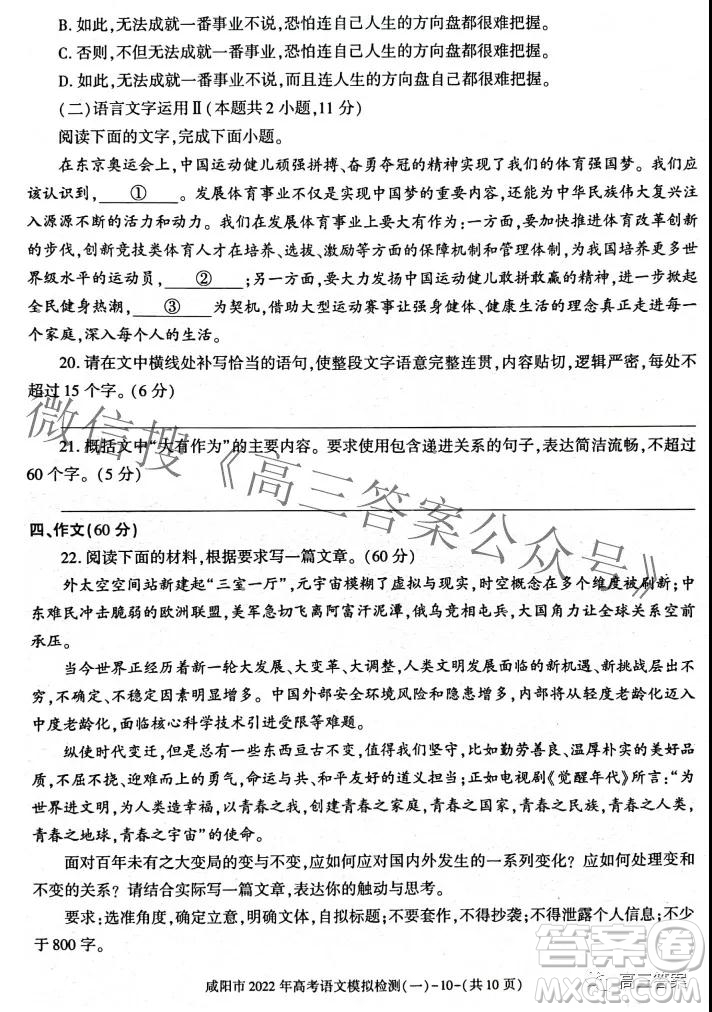 B. 如此,无法成就一番事业不说,恐怕连自己人生的方向盘都很难把握。
C. 否则,不但无法成就一番事业,恐怕连自己人生的方向盘都很难把握。
D. 如此,无法成就一番事业不说,而且连人生的方向盘自己都很难把握。
(二)语言文字运用Ⅱ(本题共2小题,11分)
阅读下面的文字,完成下面小题。
在东京奥运会上,中国运动健儿顽强拼搏、奋勇夺冠的精神实现了我们的体育强国梦。我们应
该认识到,①。发展体育事业不仅是实现中国梦的重要内容,还能为中华民族伟大复兴注
入源源不断的活力和动力。我们在发展体育事业上要大有作为:一方面,要加快推进体育改革创新
的步伐,创新竞技类体育人才在培养、选拔、激励等方面的保障机制和管理体制,为我国培养更多世
界级水平的运动员,②;另一方面,要大力发扬中国运动健儿敢拼敢赢的精神,进一步掀起
全民健身热潮,③为契机,借助大型运动赛事让强身健体、健康生活的理念真正走进每一
个家庭,深入每个人的生活。
20. 请在文中横线处补写恰当的语句,使整段文字语意完整连贯,内容贴切,逻辑严密,每处不
超过15个字。(6分)
21. 概括文中“大有作为”的主要内容。要求使用包含递进关系的句子,表达简洁流畅,不超过
60个字。(5分)
四、作文(60分)
22. 阅读下面的材料,根据要求写一篇文章。(60分)
外太空空间站新建起“三室一厅”,元宇宙模糊了虚拟与现实,时空概念在多个维度被刷新;中
东难民冲击脆弱的欧洲联盟,美军急切飞离阿富汗泥潭,俄乌竞相屯兵,大国角力让全球关系空前
承压。
当今世界正经历着新一轮大发展、大变革、大调整,人类文明发展面临的新机遇、新挑战层出不
穷,不确定、不稳定因素明显增多。中国外部安全环境风险和隐患增多,内部将从轻度老龄化迈入
中度老龄化,面临核心科学技术引进受限等难题。
纵使时代变迁,但是总有一些东西亘古不变,值得我们坚守。比如勤劳善良、温厚朴实的美好品
质,不畏挫折、迎难而上的勇气,命运与共、和平友好的道义担当;正如电视剧《觉醒年代》所言:“为
世界进文明,为人类造幸福,以青春之我,创建青春之家庭,青春之国家,青春之民族,青春之人类,
青春之地球,青春之宇宙”的使命。
面对百年未有之大变局的变与不变,应如何应对国内外发生的一系列变化?应如何处理变和
不变的关系?请结合实际写一篇文章,表达你的触动与思考。
要求:选准角度,确定立意,明确文体,自拟标题;不要套作,不得抄袭;不得泄露个人信息;不少
于800字。
咸阳市2022年高考语文模拟检测(一)-10-(共10页)
微信搜《高三答案公众号》
高三答案
答案圈
MXQE.COM